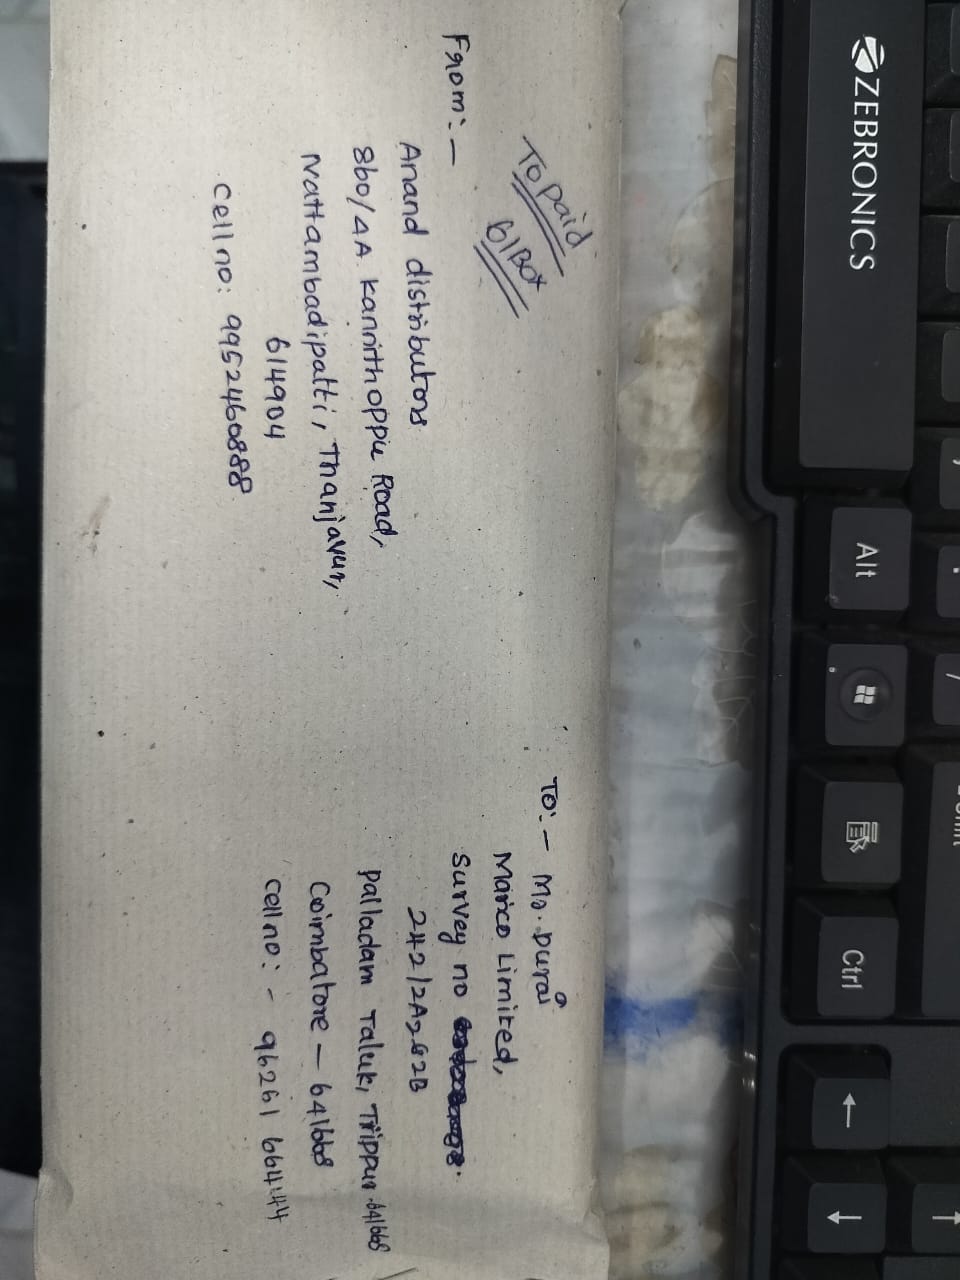 To paid
61Box
From:-
Anand distributors
860/4A Kannithoppu Road,
Nattambadipatti, Thanjavur,
614904
Cell no: 9952460888
To:- Mr. Durai
Marico Limited,
Survey no
242/2A
Palladam Taluk, Trippur-641668
Coimbatore - 641668
Cell no:- 96261 66444
ZEBRONICS
Alt
Ctrl
←
↓